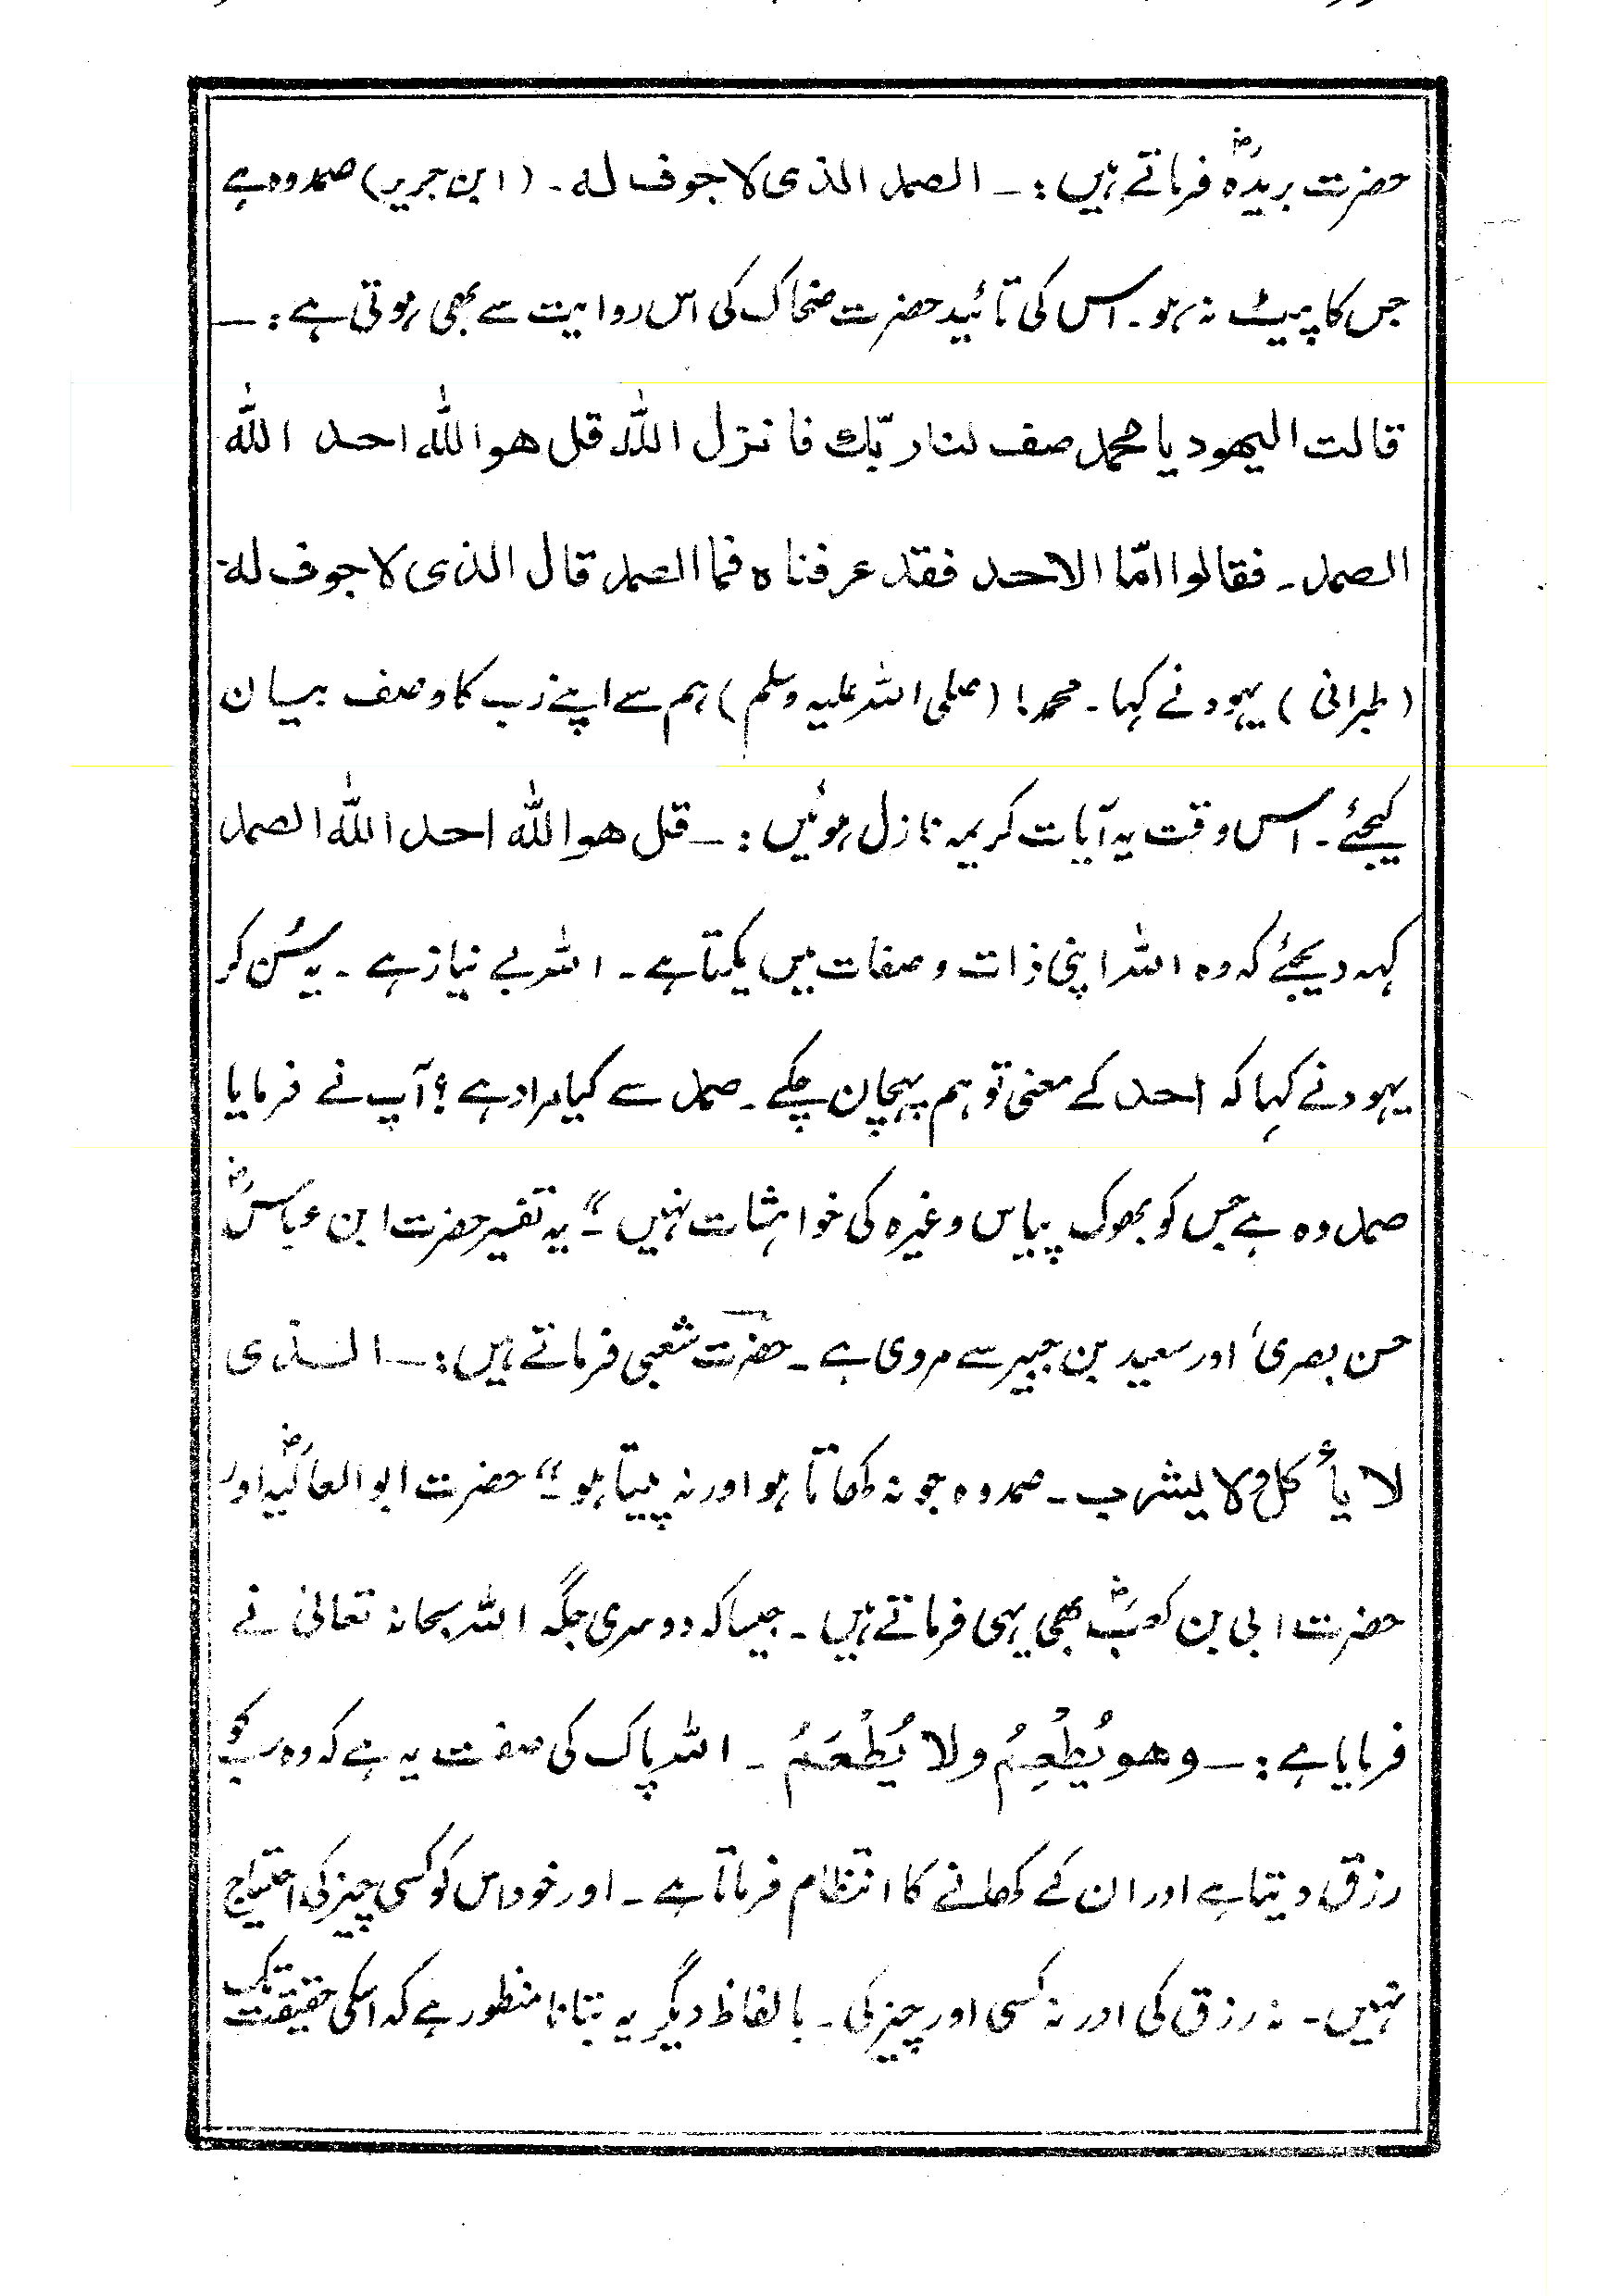 حضرت بریدہؓ فرماتے ہیں :۔ الصمد الذی لا جوف لہ ۔ (ابن جریر) صمد وہ ہے
جس کا پیٹ نہ ہو ۔ اس کی تائید حضرت ضحاک کی اس روایت سے بھی ہوتی ہے :۔
قالت الیھود یا محمد صف لنا ربّك فانزل اللہ قل ھو اللہ احد اللہ
الصمد ۔ فقالوا امّا الاحد فقد عرفناہ فما الصمد قال الذی لا جوف لہ
(طبرانی) یہود نے کہا ۔ محمد! (صلی اللہ علیہ وسلم) ہم سے اپنے رب کا وصف بیان
کیجئے ۔ اس وقت یہ آیات کریمہ نازل ہوئیں :۔ قل ھو اللہ احد اللہ الصمد
کہہ دیجئے کہ وہ اللہ اپنی ذات و صفات میں یکتا ہے ۔ اللہ بے نیاز ہے ۔ یہ سُن کر
یہود نے کہا کہ احد کے معنی تو ہم پہچان چکے ۔ صمد سے کیا مراد ہے ؟ آپ نے فرمایا
صمد وہ ہے جس کو بھوک پیاس وغیرہ کی خواہشات نہیں ۔" یہ تفسیر حضرت ابن عباسؓ
حسن بصریؒ اور سعید بن جبیر سے مروی ہے ۔ حضرت شعبی فرماتے ہیں :۔ الذی
لا یأکل ولا یشرب ۔ صمد وہ جو نہ کھاتا ہو اور نہ پیتا ہو ۔" حضرت ابو العالیہؓ اور
حضرت ابی بن کعبؓ بھی یہی فرماتے ہیں ۔ جیسا کہ دوسری جگہ اللہ سبحانہ تعالیٰ نے
فرمایا ہے :۔ وھو یُطْعِمُ ولا یُطْعَمُ ۔ اللہ پاک کی صفت یہ ہے کہ وہ سب کو
رزق دیتا ہے اور ان کے کھلانے کا انتظام فرماتا ہے ۔ اور خود اس کو کسی چیز کی احتیاج
نہیں ۔ نہ رزق کی اور نہ کسی اور چیز کی ۔ بالفاظ دیگر یہ بتانا منظور ہے کہ اسکی حقیقت تک